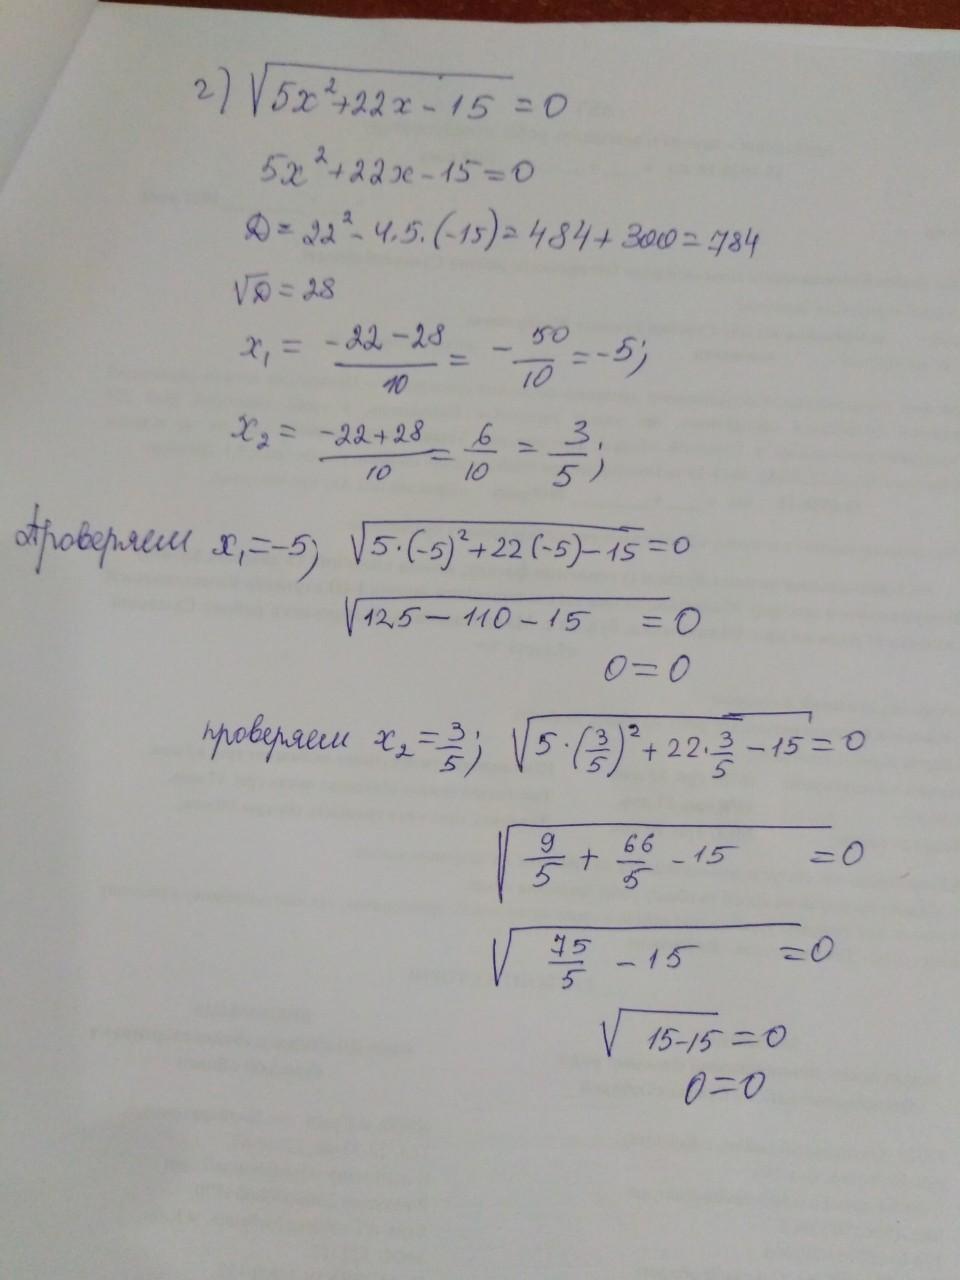 г) √(5x²+22x-15) = 0
5x²+22x-15=0
D = 22²-4·5·(-15)=484+300=784
√D = 28
x₁ = (-22-28)/10 = -50/10 = -5;
x₂ = (-22+28)/10 = 6/10 = 3/5;
Проверяем x₁=-5; √(5·(-5)²+22(-5)-15)=0
√(125-110-15) = 0
0=0
проверяем x₂=3/5; √(5·(3/5)²+22·3/5-15)=0
√(9/5+66/5-15) =0
√(75/5-15) =0
√(15-15)=0
0=0